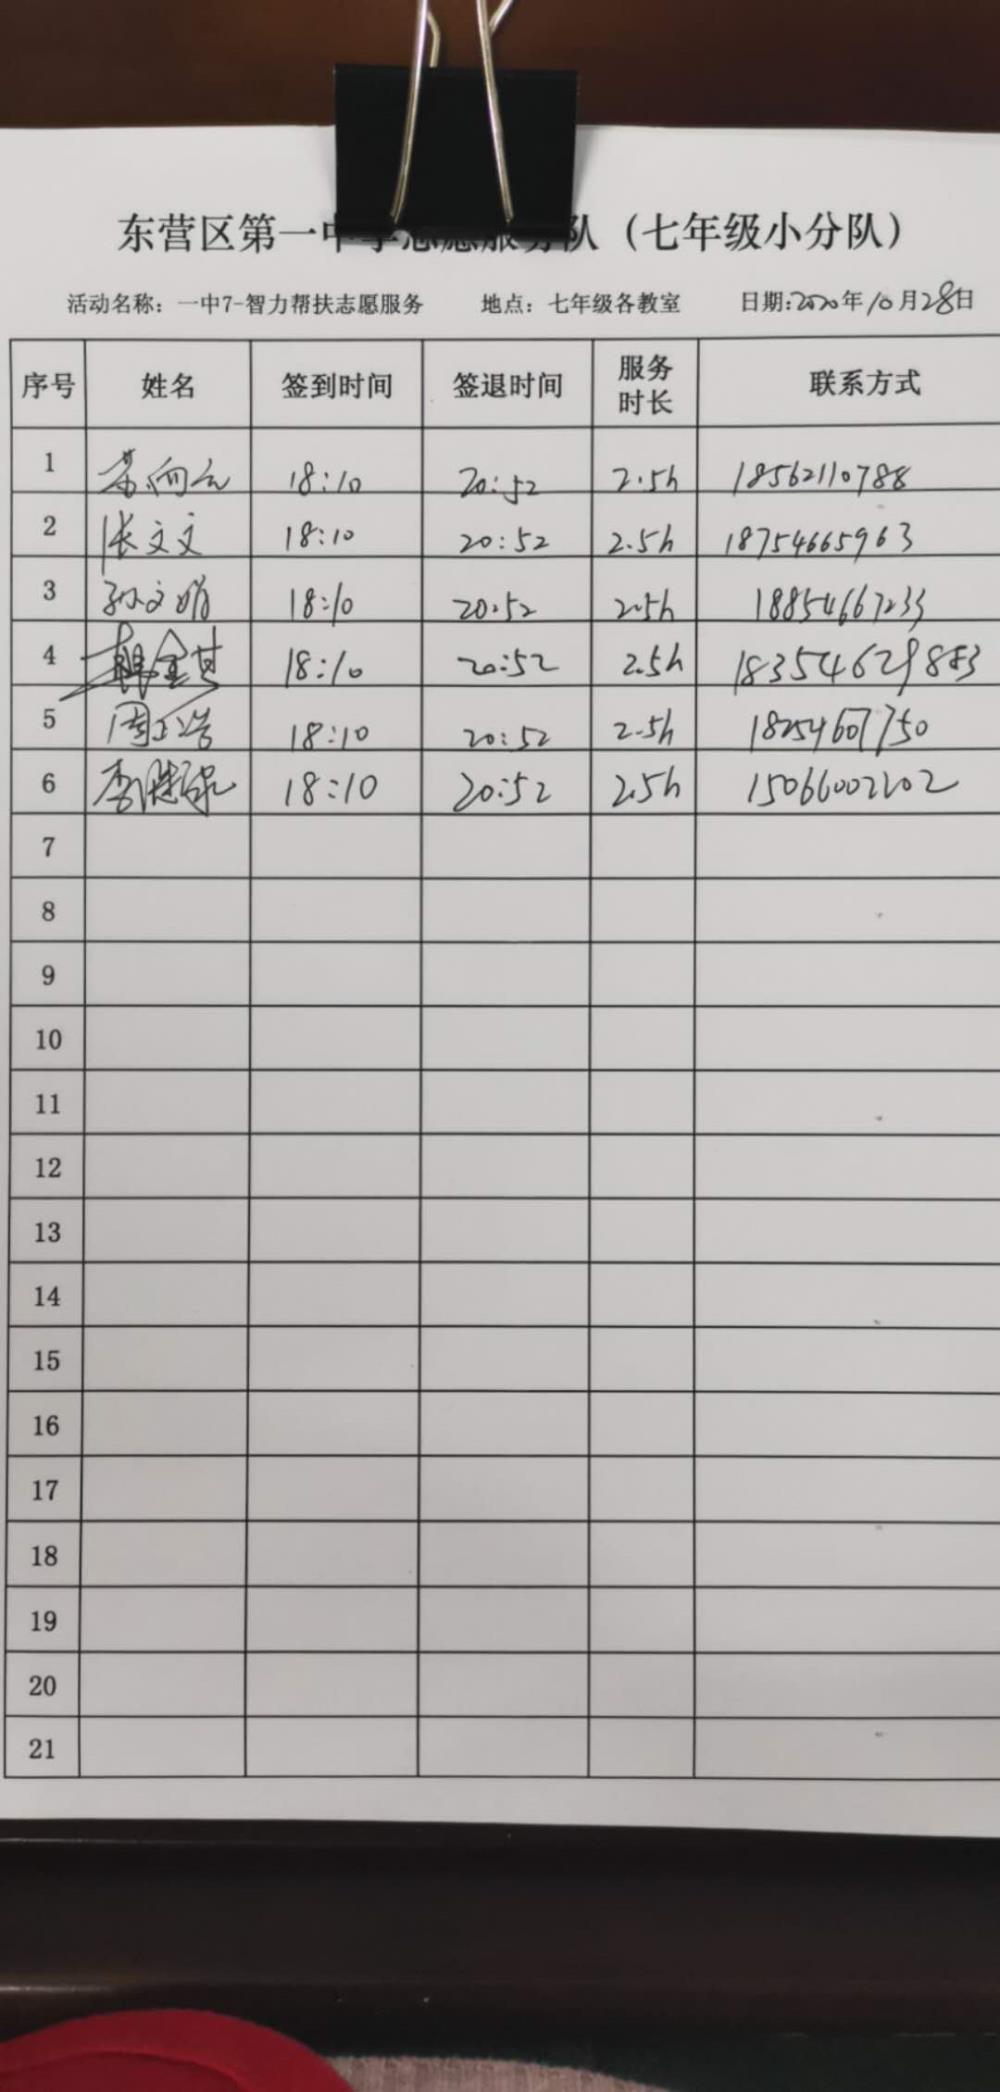 东营区第一中学志愿服务队（七年级小分队）
活动名称：一中7-智力帮扶志愿服务 地点：七年级各教室 日期:2020年10月28日
序号 姓名 签到时间 签退时间 服务时长 联系方式
1 18:10 20:52 2.5h 18562110788
2 张文文 18:10 20:52 2.5h 18754665963
3 孙文娟 18:10 20:52 2.5h 18854667233
4 18:10 20:52 2.5h
5 周正浩 18:10 20:52 2.5h 18254607750
6 18:10 20:52 2.5h 15066002202
7
8
9
10
11
12
13
14
15
16
17
18
19
20
21